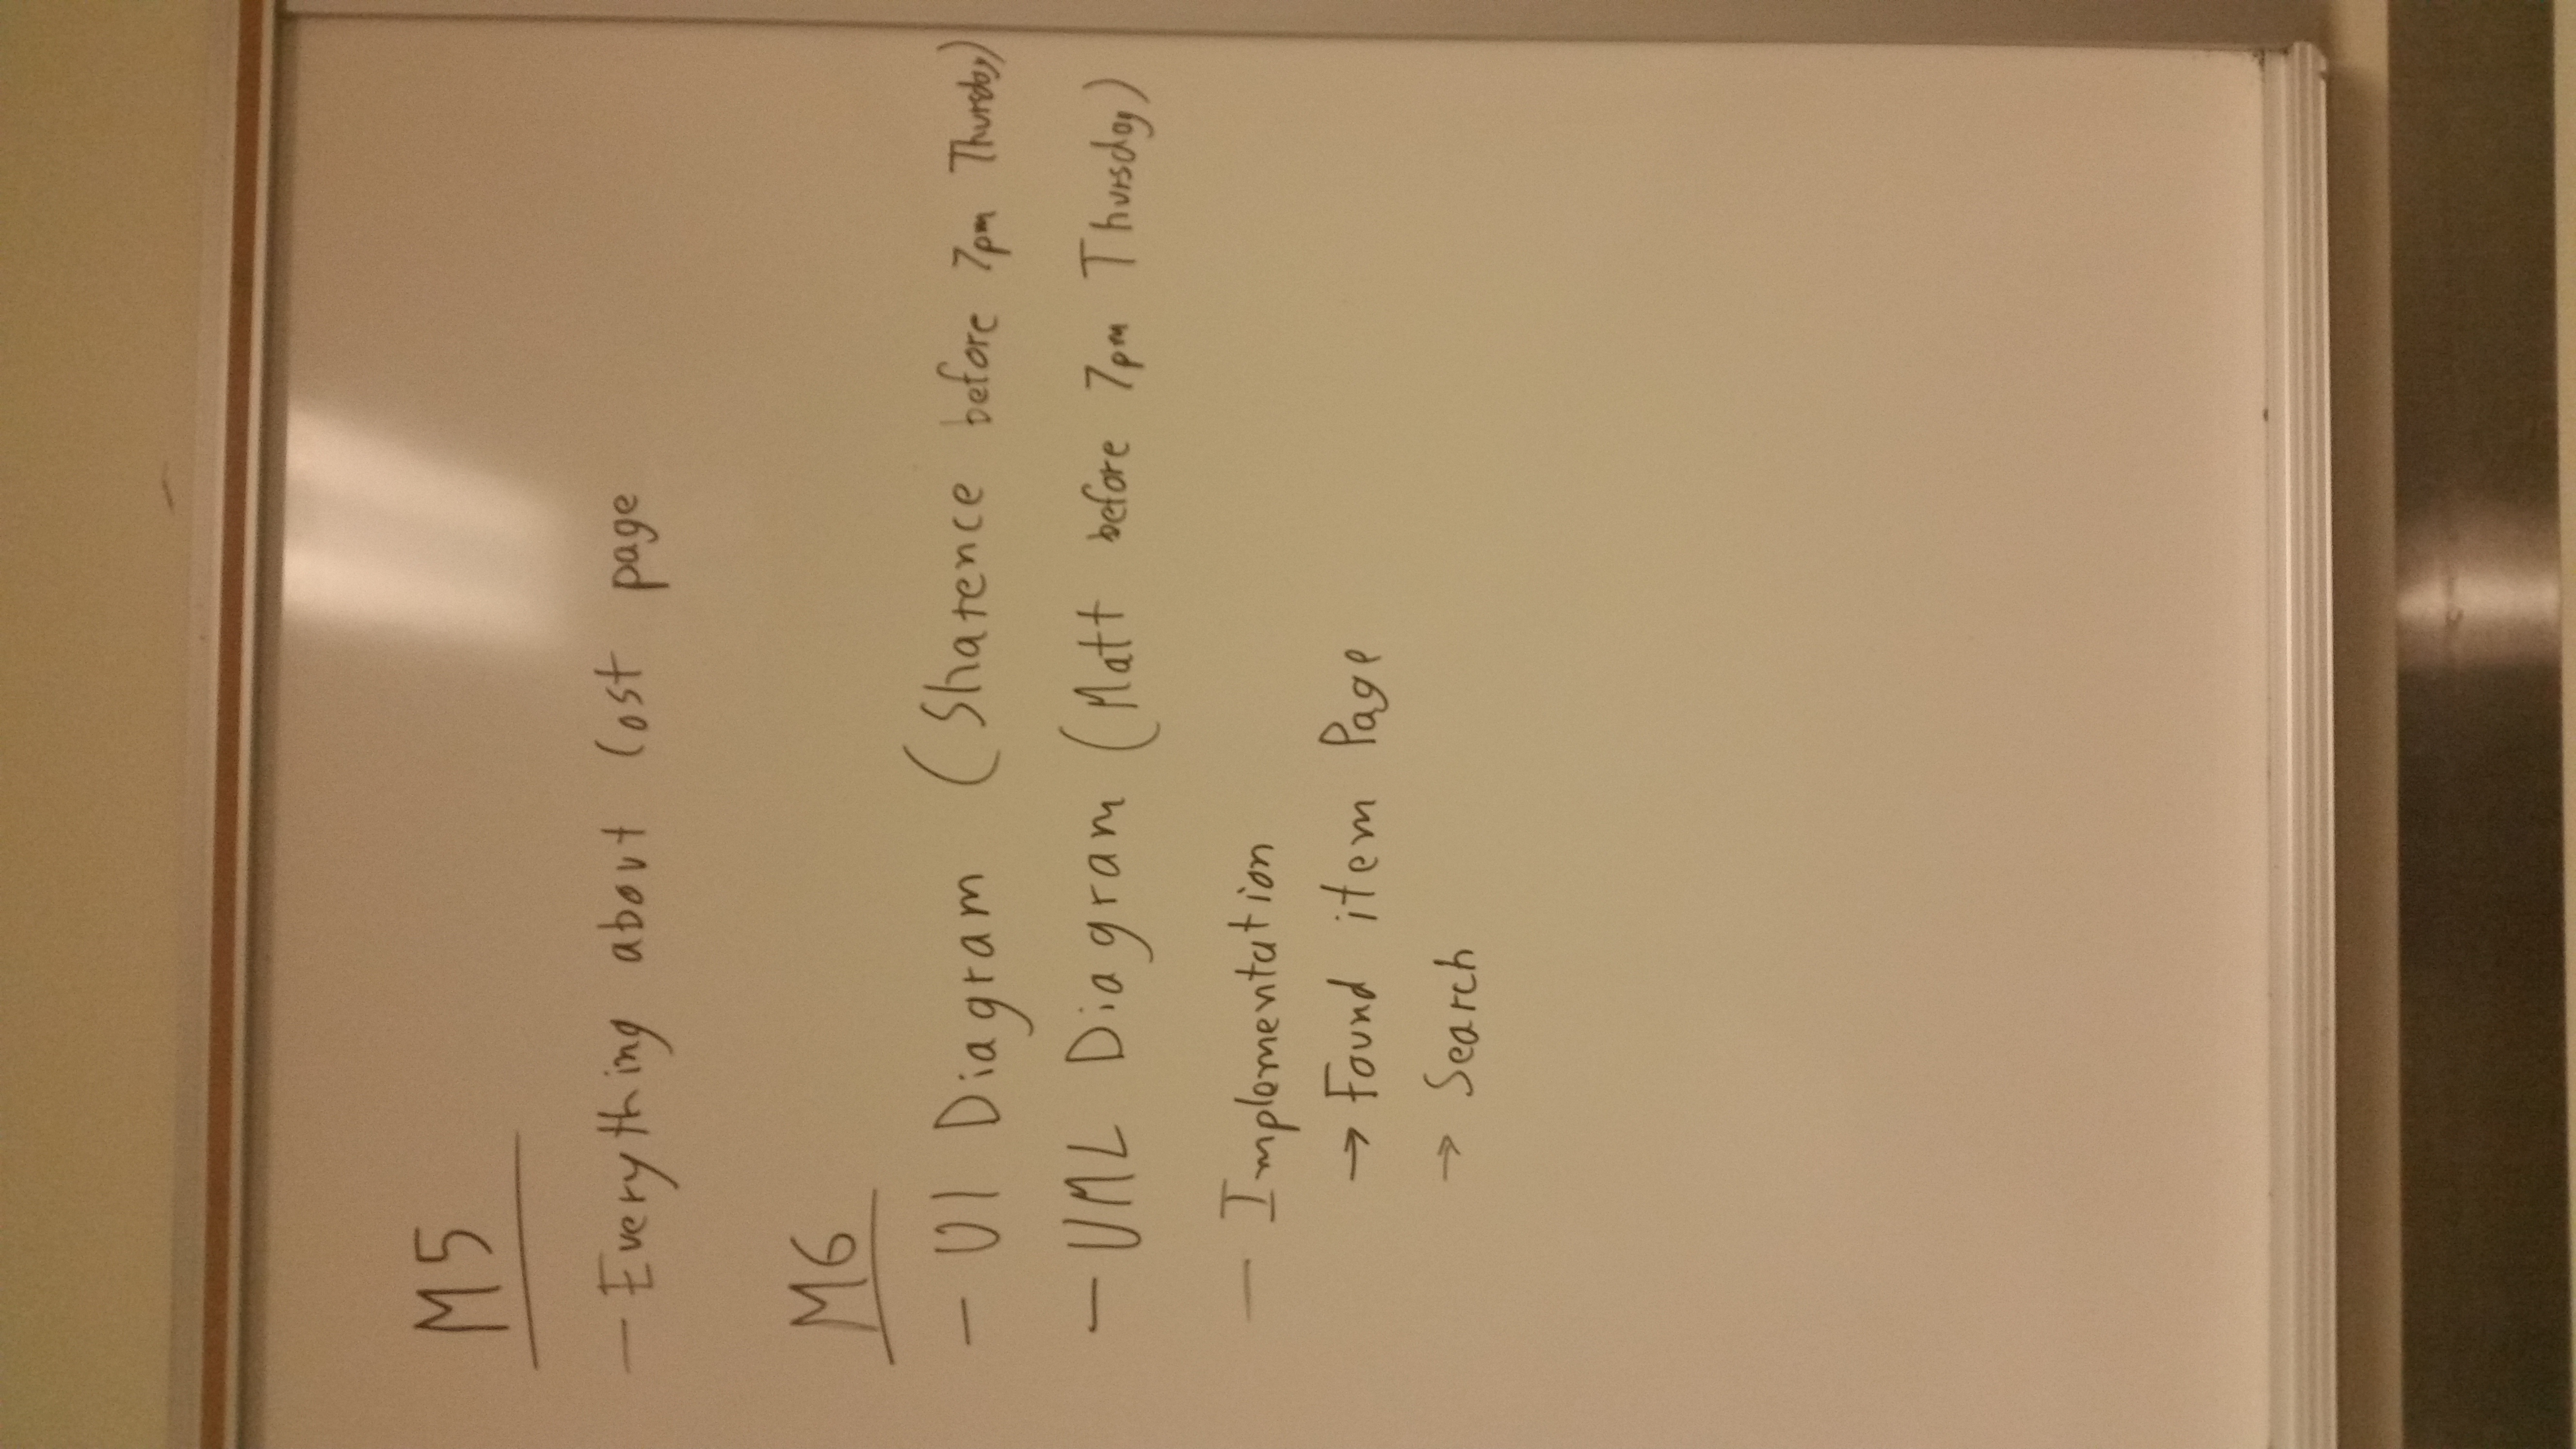 M5
- Everything about Lost page
M6
- UI Diagram (Sharence before 7pm Thursday)
- UML Diagram (Matt before 7pm Thursday)
- Implementation
→ Found item Page
→ Search